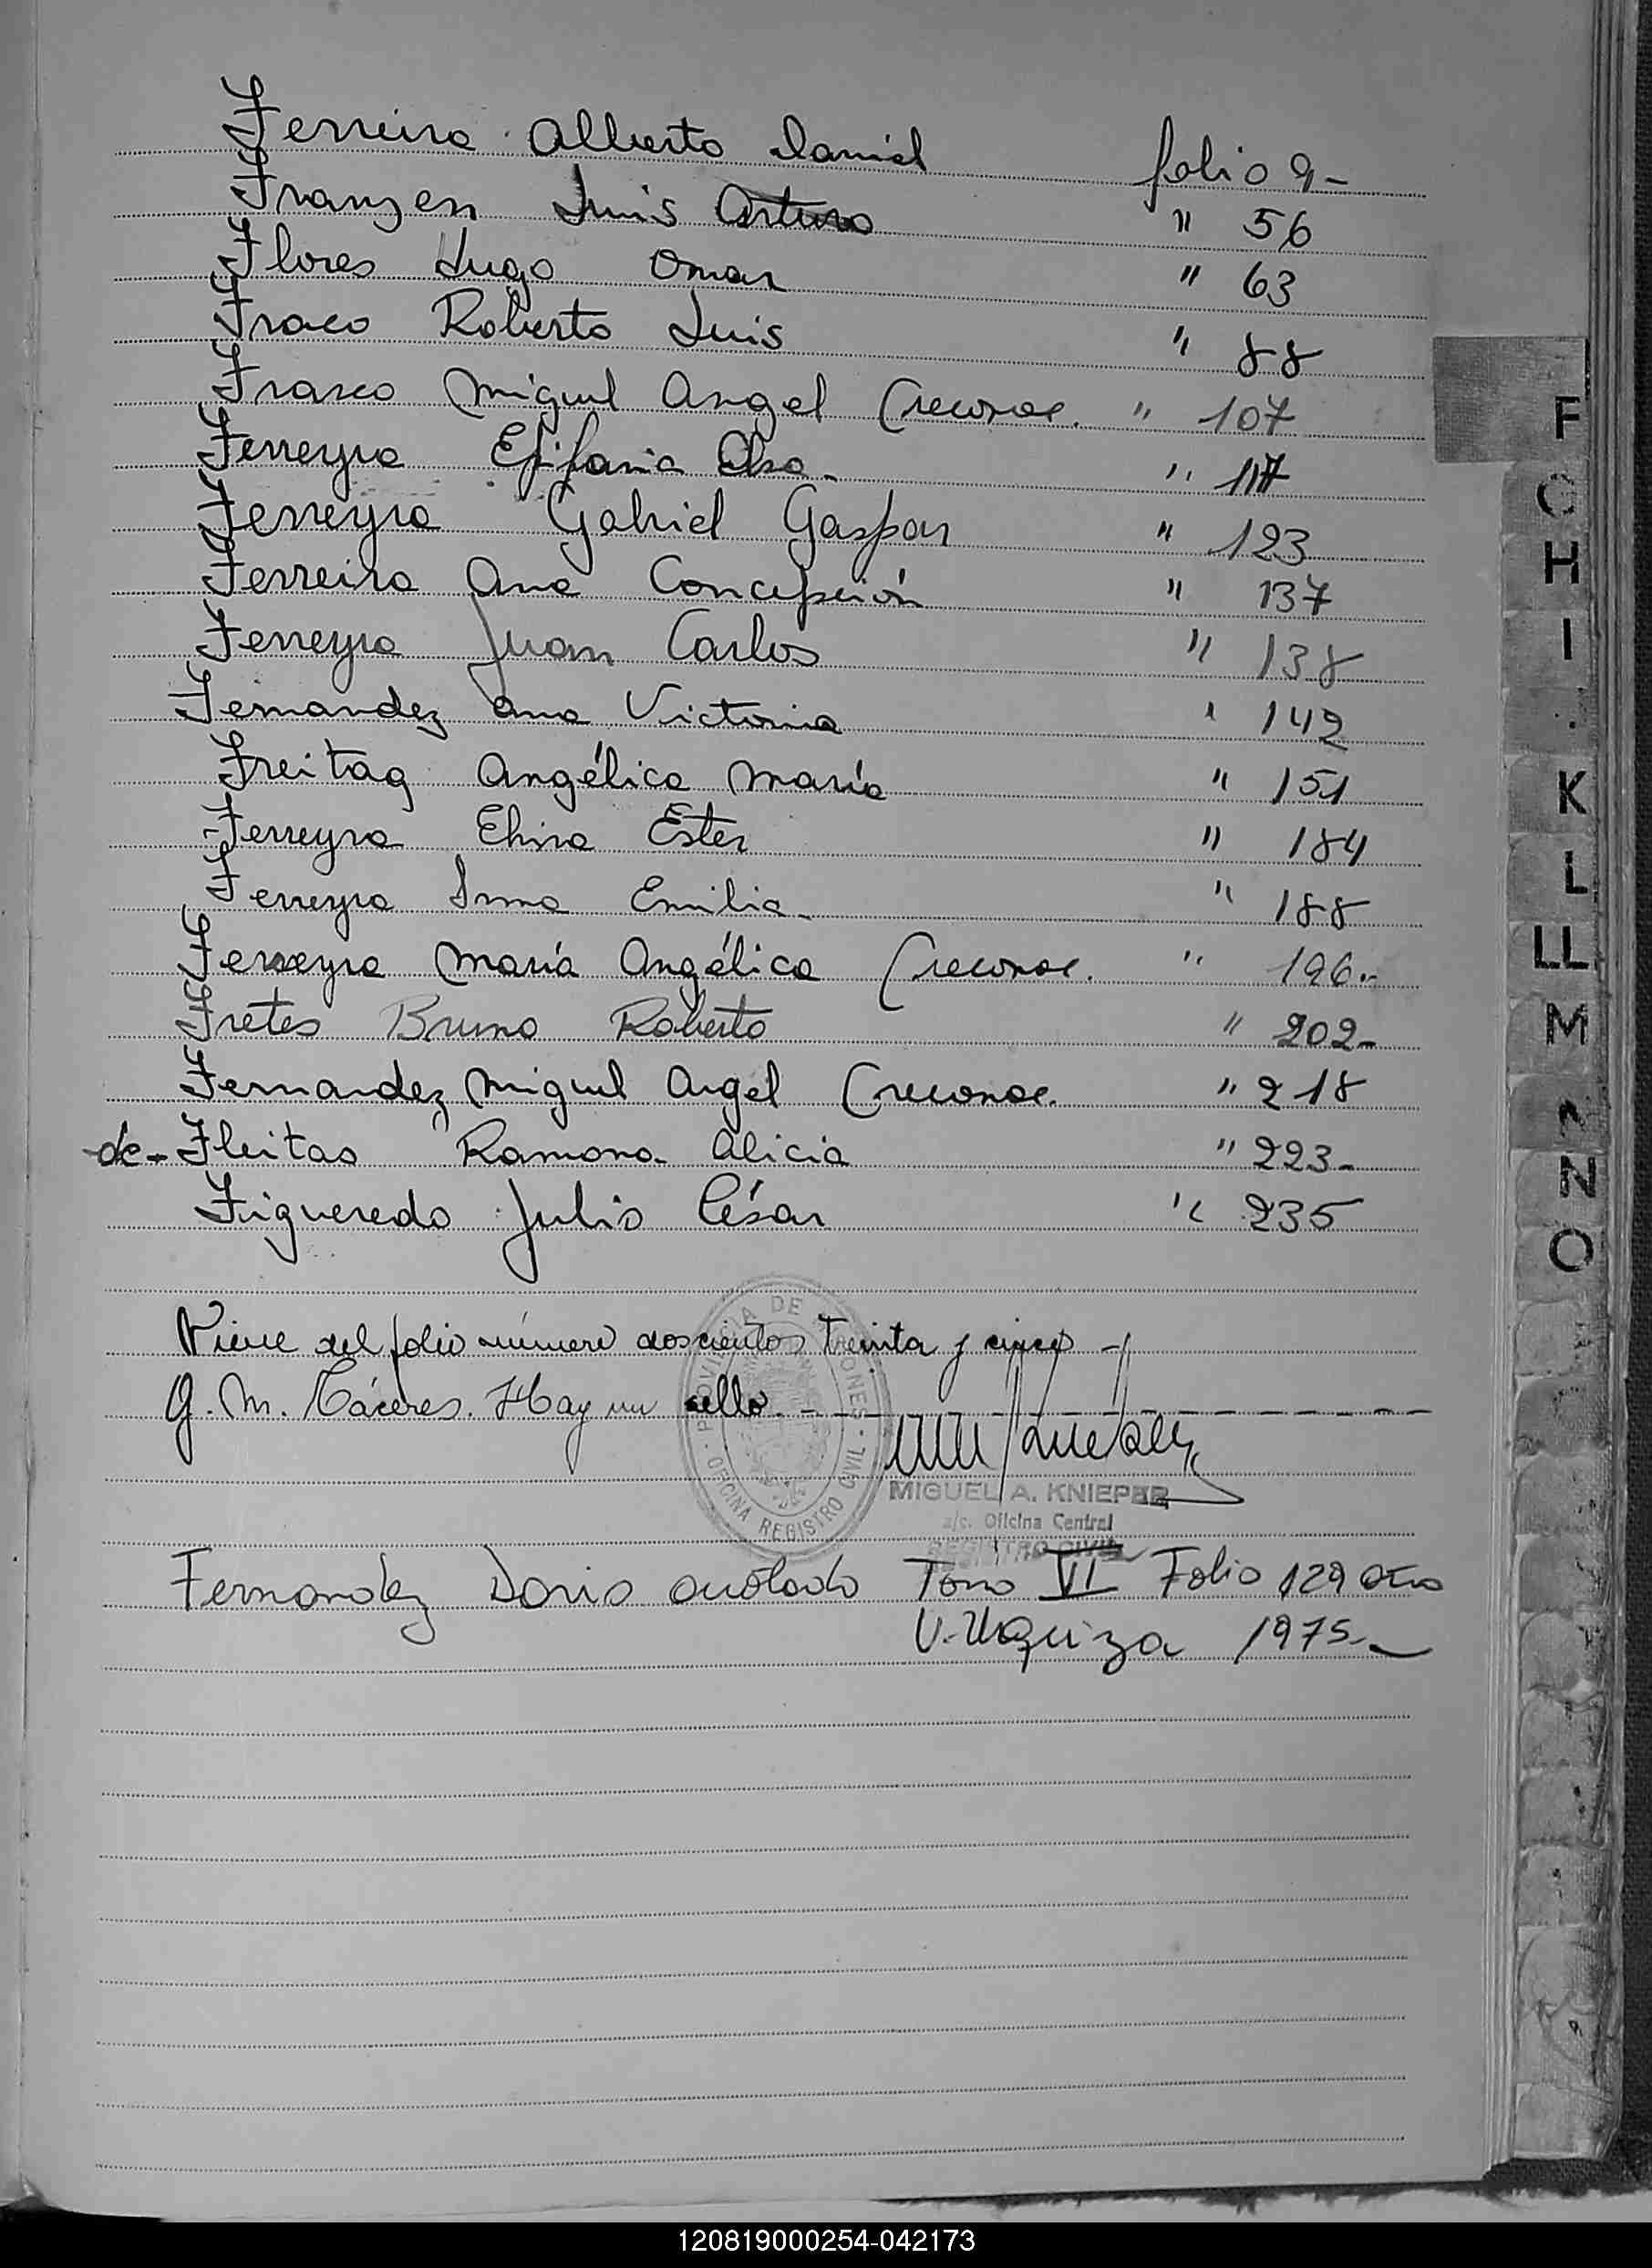 Ferreira Alberto Daniel folio 9-
Franzen Luis Arturo " 56
Flores Hugo Omar " 63
Franco Roberto Luis " 88
Franco Miguel Angel (reconoc. " 107
Ferreyra Epifania Elsa - " 117
Ferreyra Gabriel Gaspar " 123
Ferreira Ana Concepción " 137
Ferreyra Juan Carlos " 138
Fernandez Ana Victoria " 142
Freitag Angélica María " 151
Ferreyra Elvira Ester " 184
Ferreyra Irma Emilia - " 188
Ferreyra María Angélica (reconoc. " 196.-
Fretes Bruno Roberto " 202-
Fernandez Miguel Angel (reconoc. " 218
de - Fleitas Ramona Alicia " 223-
Figueredo Julio César " 235
Viene del folio número doscientos treinta y cinco -
G. M. Cáceres. Hay un sello. -
PROVINCIA DE MISIONES
OFICINA REGISTRO CIVIL
MIGUEL A. KNIEPER
a/c. Oficina Central
REGISTRO CIVIL
Fernandez Doris anotado Tomo VI Folio 129 año
V. Urquiza 1975.-
F
G
H
I
K
L
LL
M
N
O
120819000254-042173